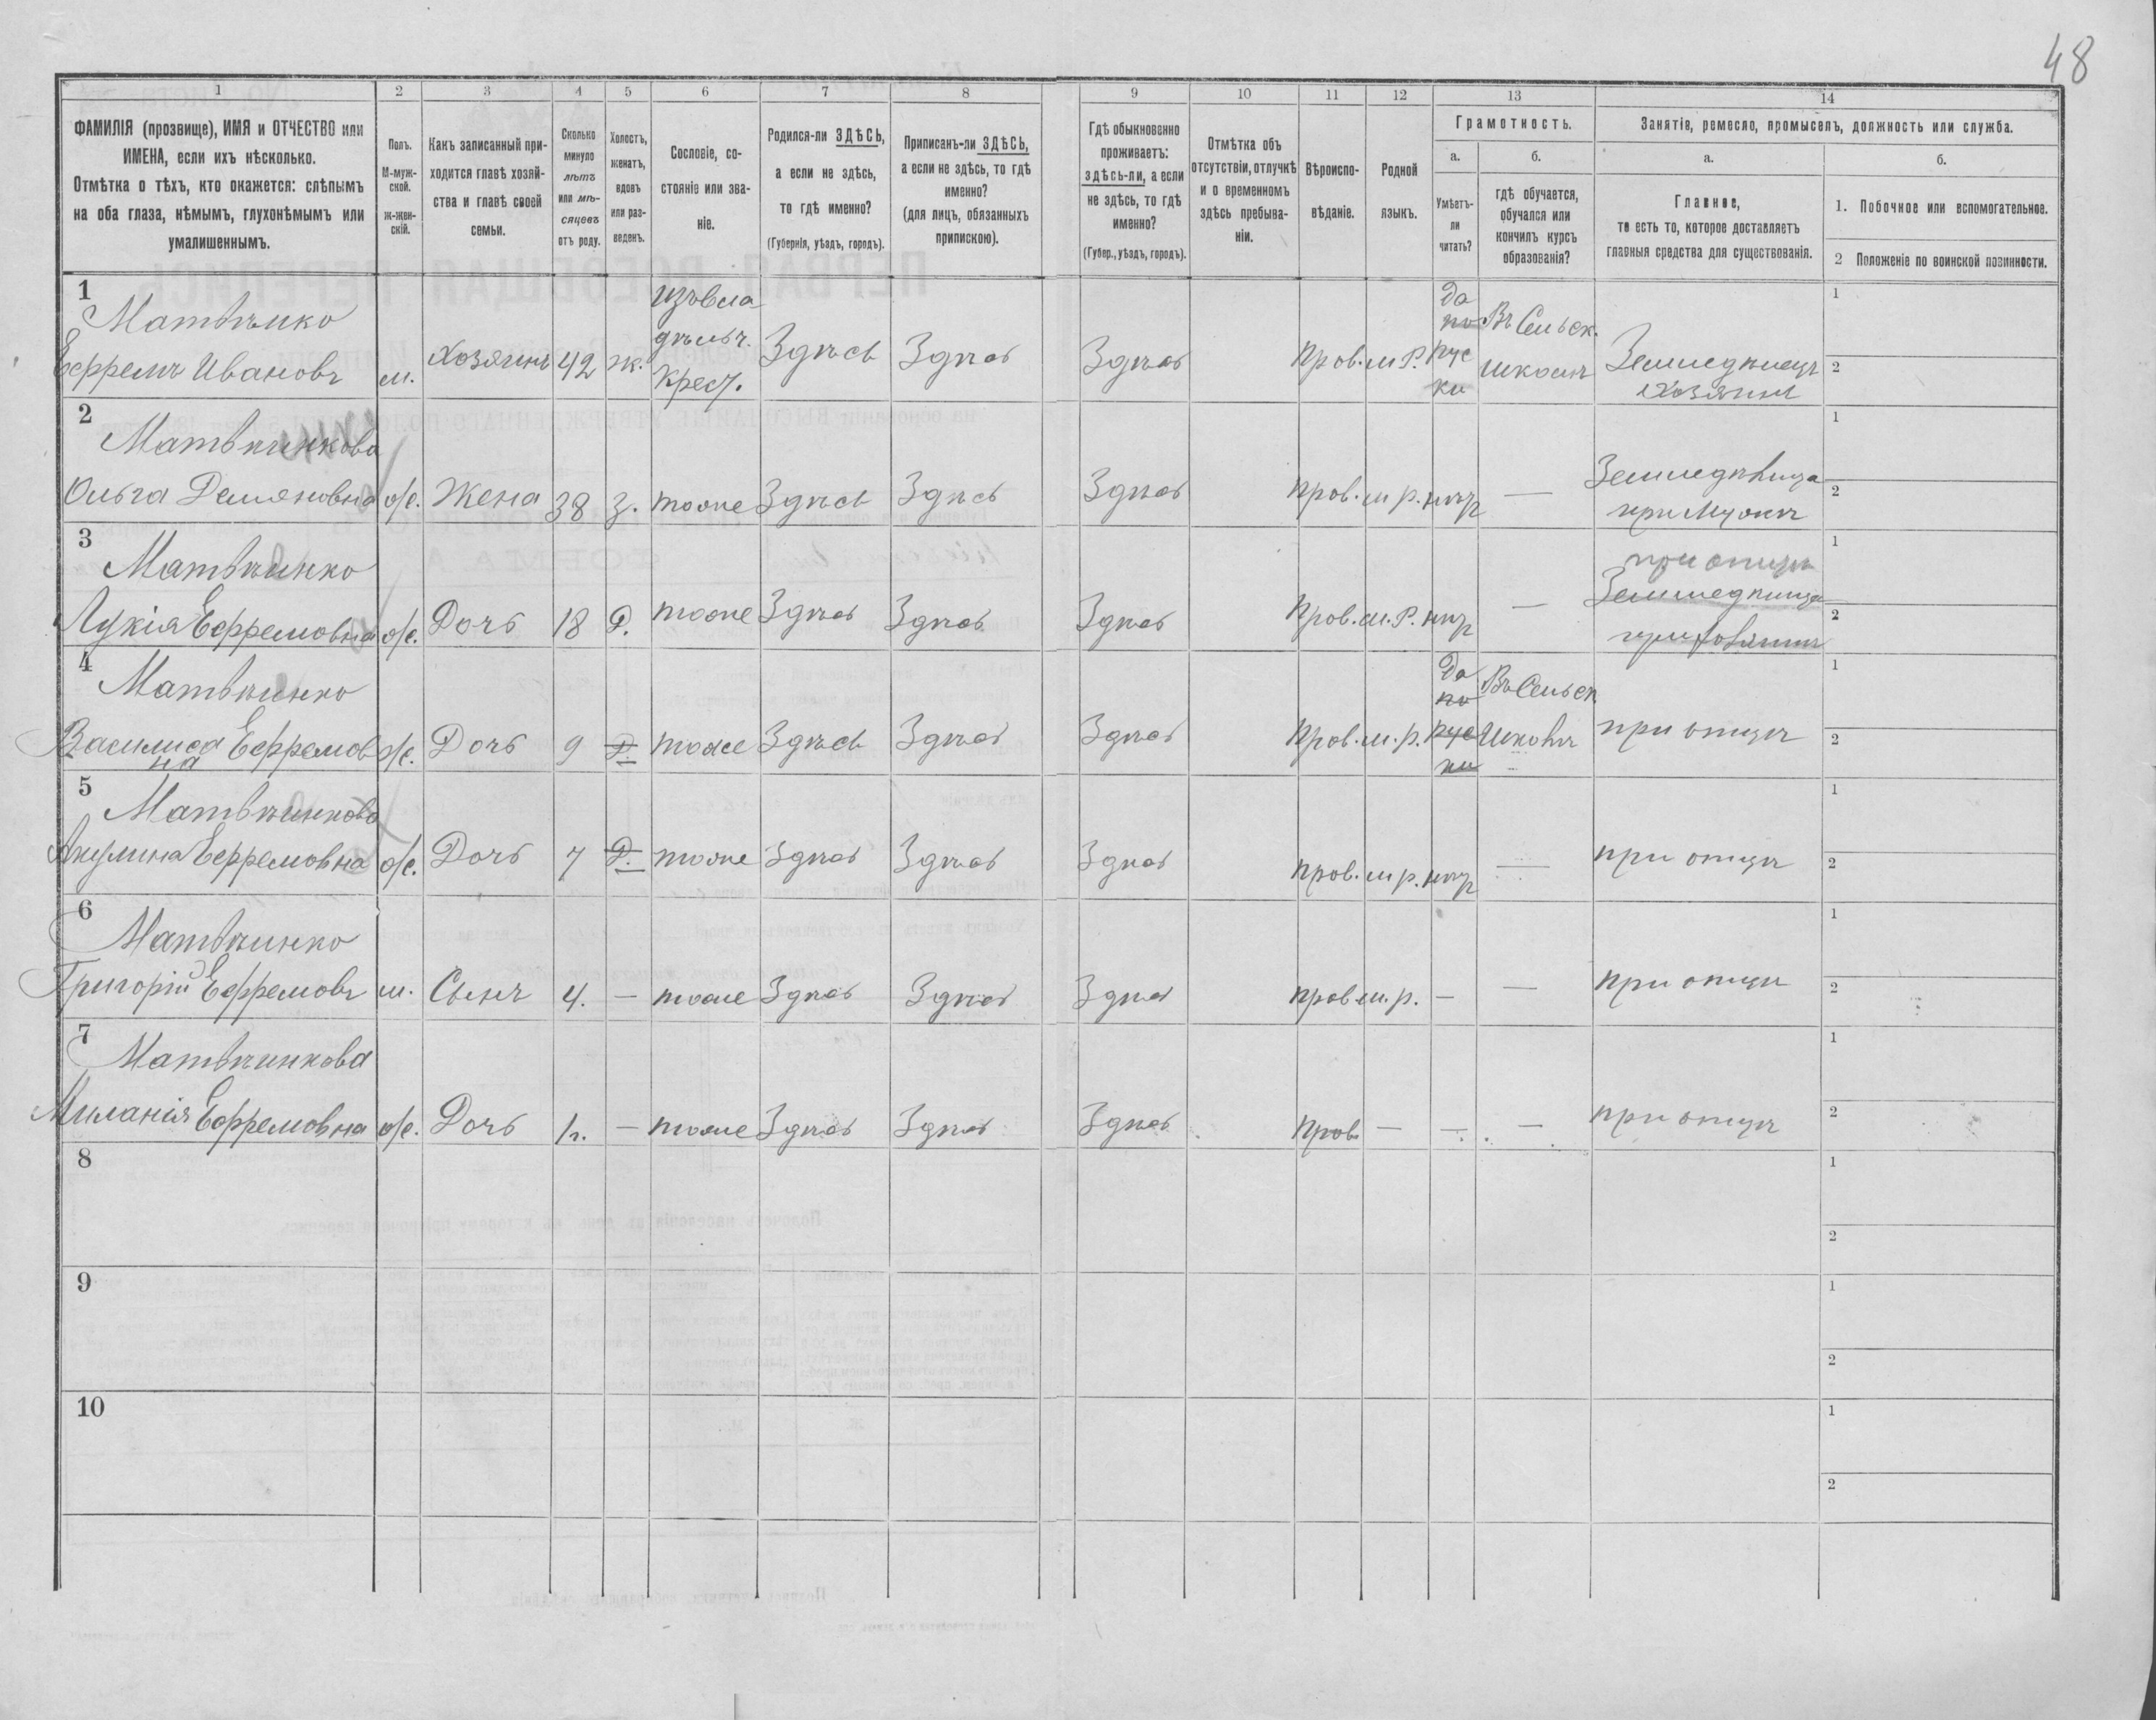 48
1 2 3 4 5 6 7 8 9 10 11 12 13 14
ФАМИЛІЯ (прозвище), ИМЯ и ОТЧЕСТВО или
ИМЕНА, если ихъ нѣсколько.
Отмѣтка о тѣхъ, кто окажется: слѣпымъ
на оба глаза, нѣмымъ, глухонѣмымъ или
умалишеннымъ.
Полъ.
М-муж-
ской.
ж-жен-
скій.
Какъ записанный при-
ходится главѣ хозяй-
ства и главѣ своей
семьи.
Сколько
минуло
лѣтъ
или мѣ-
сяцевъ
отъ роду.
Холостъ,
женатъ,
вдовъ
или раз-
веденъ.
Сословіе, со-
стояніе или зва-
ніе.
Родился-ли ЗДѢСЬ,
а если не здѣсь,
то гдѣ именно?
(Губернія, уѣздъ, городъ).
Приписанъ-ли ЗДѢСЬ,
а если не здѣсь, то гдѣ
именно?
(для лицъ, обязанныхъ
припискою).
Гдѣ обыкновенно
проживаетъ:
здѣсь-ли, а если
не здѣсь, то гдѣ
именно?
(Губер., уѣздъ, городъ).
Отмѣтка объ
отсутствіи, отлучкѣ
и о временномъ
здѣсь пребыва-
ніи.
Вѣроиспо-
вѣданіе.
Родной
языкъ.
Грамотность.
а.
Умѣетъ-
ли
читать?
б.
гдѣ обучается,
обучался или
кончилъ курсъ
образованія?
Занятіе, ремесло, промыселъ, должность или служба.
а.
Главное,
то есть то, которое доставляетъ
главныя средства для существованія.
б.
1. Побочное или вспомогательное.
2 Положеніе по воинской повинности.
1
Матвѣинко
Ефремъ Ивановъ м. Хозяинъ 42 ж. изъ вла
дѣльч.
Крест. Здѣсь Здѣсь Здѣсь Прав. м.Р. да
по
рус
ки Въ Сельск.
школѣ Земледѣлецъ
Хозяинъ
1
2
2
Матвѣинкова
Ольга Демяновна ж. Жена 38 з. тоже Здѣсь Здѣсь Здѣсь Прав. м.р. нѣт — Земледѣлица
при мужѣ
1
2
3
Матвѣинко
Лукія Ефремовна ж. Дочь 18 Д. тоже Здѣсь Здѣсь Здѣсь Прав. м.Р. нѣт — при отцѣ
Земледѣлица
1
2
4
Матвѣинко
Василиса Ефремов
на ж. Дочь 9 Д. тоже Здѣсь Здѣсь Здѣсь Прав. м.р. да
по
рус
ки Въ Сельск
Школѣ при отцѣ
1
2
5
Матвѣинкова
Акулина Ефремовна ж. Дочь 7 Д. тоже Здѣсь Здѣсь Здѣсь Прав. м.р. нѣт — при отцѣ
1
2
6
Матвѣинко
Григорій Ефремовъ м. Сынъ 4. — тоже Здѣсь Здѣсь Здѣсь Прав м.р. — — при отцѣ
1
2
7
Матвѣинкова
Миланія Ефремовна ж. Дочь 1г. — тоже Здѣсь Здѣсь Здѣсь Прав. — — — при отцѣ
1
2
8
1
2
9
1
2
10
1
2